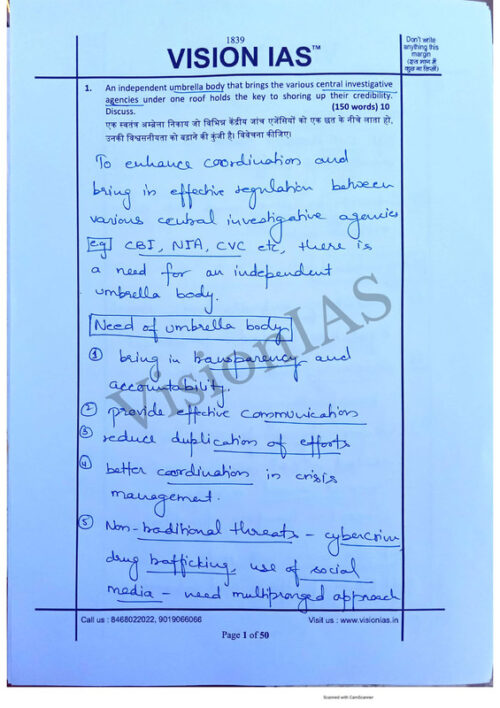 1839
VISION IAS™
Don't write
anything this
margin
(इस भाग में
कुछ ना लिखें)
1. An independent umbrella body that brings the various central investigative
agencies under one roof holds the key to shoring up their credibility.
Discuss. (150 words) 10
एक स्वतंत्र अम्ब्रेला निकाय जो विभिन्न केंद्रीय जांच एजेंसियों को एक छत के नीचे लाता हो,
उनकी विश्वसनीयता को बढ़ाने की कुंजी है। विवेचना कीजिए।
To enhance coordination and
bring in effective regulation between
various central investigative agencies
eg CBI, NIA, CVC etc, there is
a need for an independent
umbrella body.
Need of umbrella body
① bring in transparency and
accountability.
② provide effective communication
③ reduce duplication of efforts
④ better coordination in crisis
management.
⑤ Non-traditional threats - cybercrim
drug trafficking, use of social
media - need multipronged approach
VisionIAS
Call us : 8468022022, 9019066066 Visit us : www.visionias.in
Page 1 of 50
Scanned with CamScanner